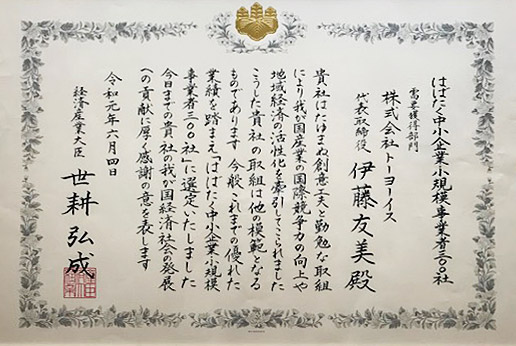 はばたく中小企業小規模事業者三〇〇社
需要獲得部門
株式会社トーヨーイス
代表取締役 伊藤友美殿
貴社はたゆまぬ創意工夫と勤勉な取組
により我が国産業の国際競争力の向上や
地域経済の活性化を牽引してこられました
こうした貴社の取組は他の模範となる
ものであります 今般これまでの優れた
業績を踏まえ「はばたく中小企業小規模
事業者三〇〇社」に選定いたしました
今日までの貴社の我が国経済社会の発展
への貢献に厚く感謝の意を表します
令和元年六月四日
経済産業大臣 世耕弘成